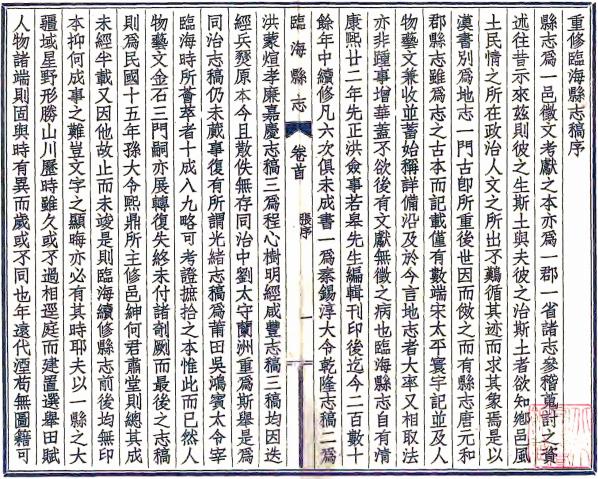 重修臨海縣志稿序
縣志爲一邑徵文考獻之本亦爲一郡一省諸志參稽蒐討之資
述往昔示來茲則彼之生斯土與夫彼之治斯土者欲知鄉邑風
土民情之所在政治人文之所出不鷬循其迹而求其象焉是以
漢書別爲地志一門古卽所重後世因而倣之而有縣志唐元和
郡縣志雖爲志之古本而記載僅有數端宋太平寰宇記並及人
物藝文兼收並蓄始稱詳備沿及於今言地志者大率又相取法
亦非踵事增華蓋不欲後有文獻無徵之病也臨海縣志自有清
康熙廿二年先正洪僉事若皋先生編輯刊印後迄今二百數十
餘年中續修凡六次俱未成書一爲秦錫淳大令乾隆志稿二爲
臨海縣志
卷首
張序
一
洪蒙煊孝廉嘉慶志稿三爲程心樹明經咸豐志稿三稿均因迭
經兵燹原本今且散佚無存同治中劉太守蘭洲重爲斯舉是爲
同治志稿仍未蕆事復有所謂光緒志稿爲莆田吳鴻賓太令宰
臨海時所薈萃者十成八九略可考證摭拾之本惟此而已然人
物藝文金石三門嗣亦展轉復失終未付諸剞劂而最後之志稿
則爲民國十五年孫大令熙鼎所主修邑紳何君肅堂則總其成
未經半載又因他故止而未竣是則臨海續修縣志前後均無印
本抑何成事之難豈文字之顯晦亦必有其時耶夫以一縣之大
疆域星野形勝山川歷時雖久或不過相逕庭而建置選舉田賦
人物諸端則固與時有異而歲或不同也年遠代湮苟無圖籍可